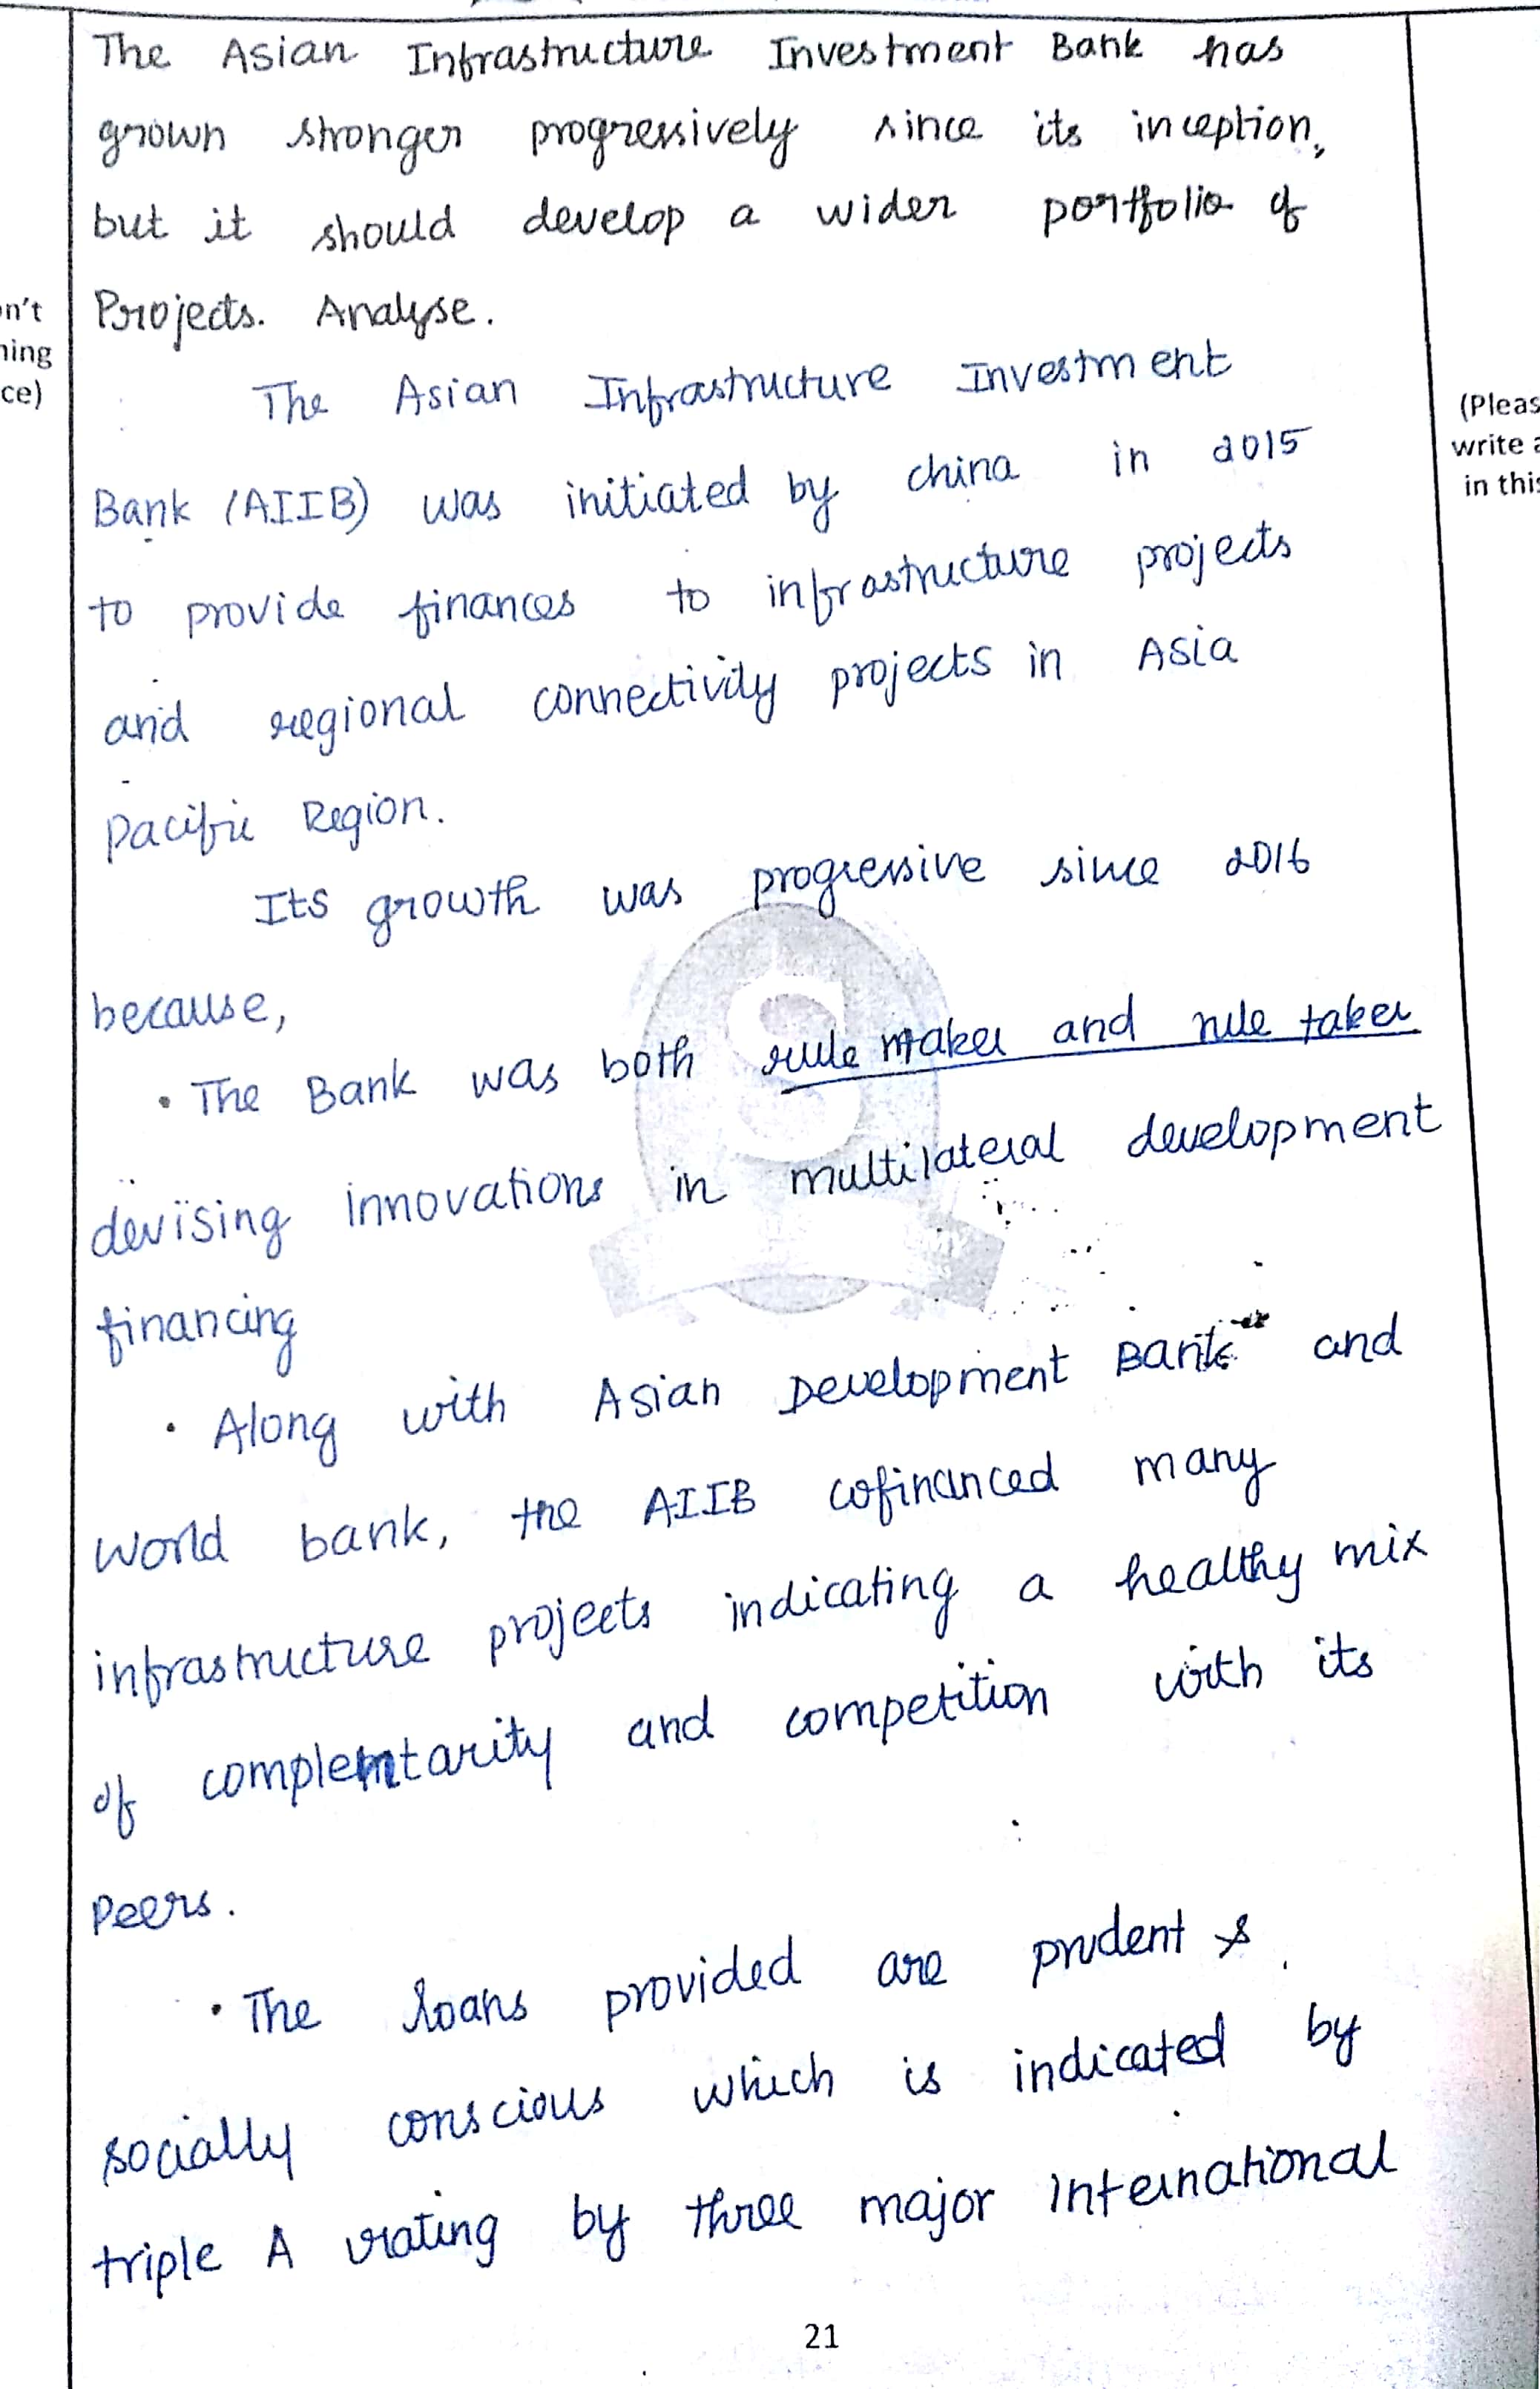 The Asian Infrastructure Investment Bank has
grown stronger progressively since its inception,
but it should develop a wider portfolio of
Projects. Analyse.
n't
ning
ce)
(Pleas
write a
in this
The Asian Infrastructure Investment
Bank (AIIB) was initiated by china in 2015
to provide finances to infrastructure projects
and regional connectivity projects in Asia
Pacific Region.
Its growth was progressive since 2016
because,
• The Bank was both rule maker and rule taker
devising innovations in multilateral development
financing
• Along with Asian Development Bank and
World bank, the AIIB cofinanced many
infrastructure projects indicating a healthy mix
of complemtarity and competition with its
Peers.
• The loans provided are prudent &
socially conscious which is indicated by
triple A rating by three major International
21